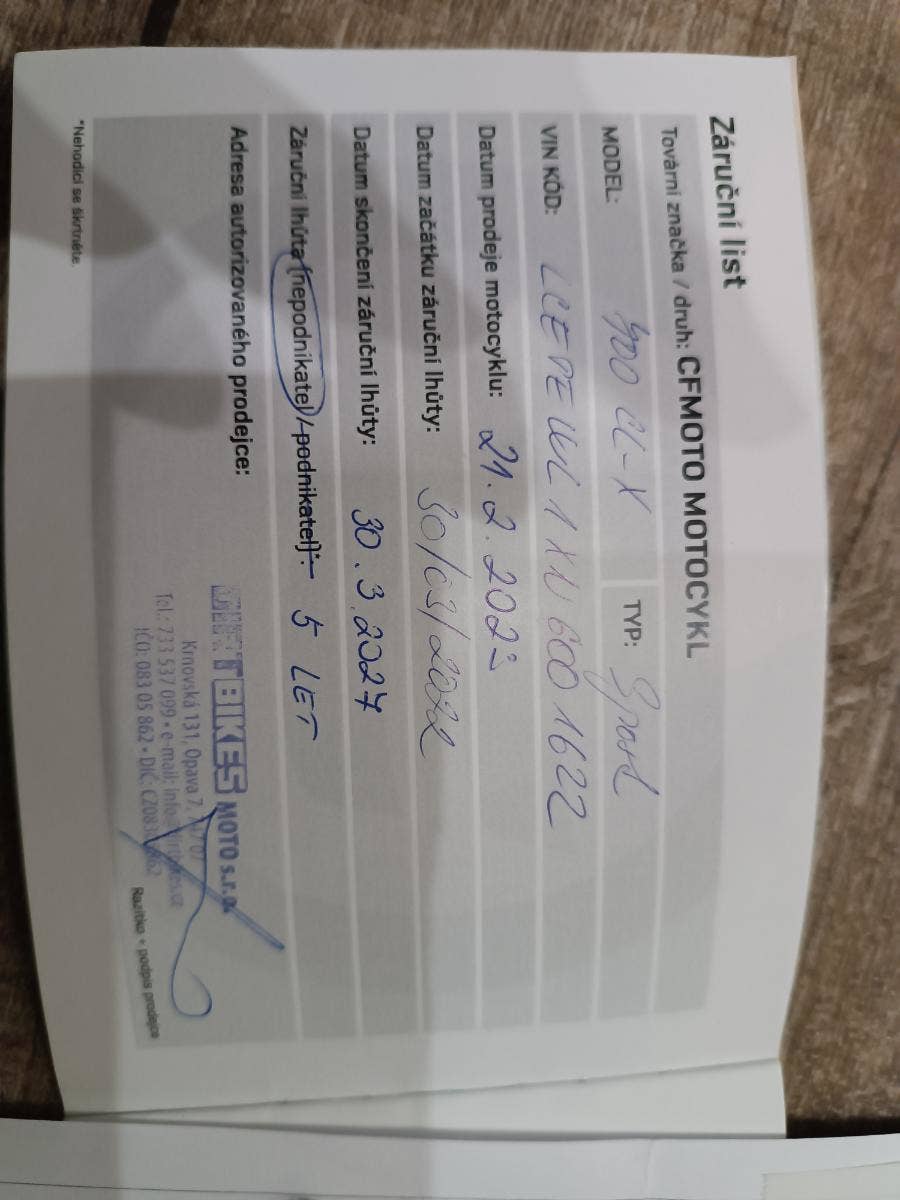 Záruční list
Tovární značka / druh: CFMOTO MOTOCYKL
MODEL: 700 CL-X TYP: Sport
VIN KÓD: LCEPEUL1XN6001622
Datum prodeje motocyklu: 21.2.2023
Datum začátku záruční lhůty: 30/03/2022
Datum skončení záruční lhůty: 30.3.2027
Záruční lhůta (nepodnikatel / podnikatel)*: 5 LET
Adresa autorizovaného prodejce:
DIRTBIKES MOTO s.r.o.
Krnovská 131, Opava 7, 747 07
Tel.: 733 537 099 • e-mail: info@dirtbikes.cz
IČO: 083 05 862 • DIČ: CZ08305862
Razítko + podpis prodejce
*Nehodící se škrtněte.